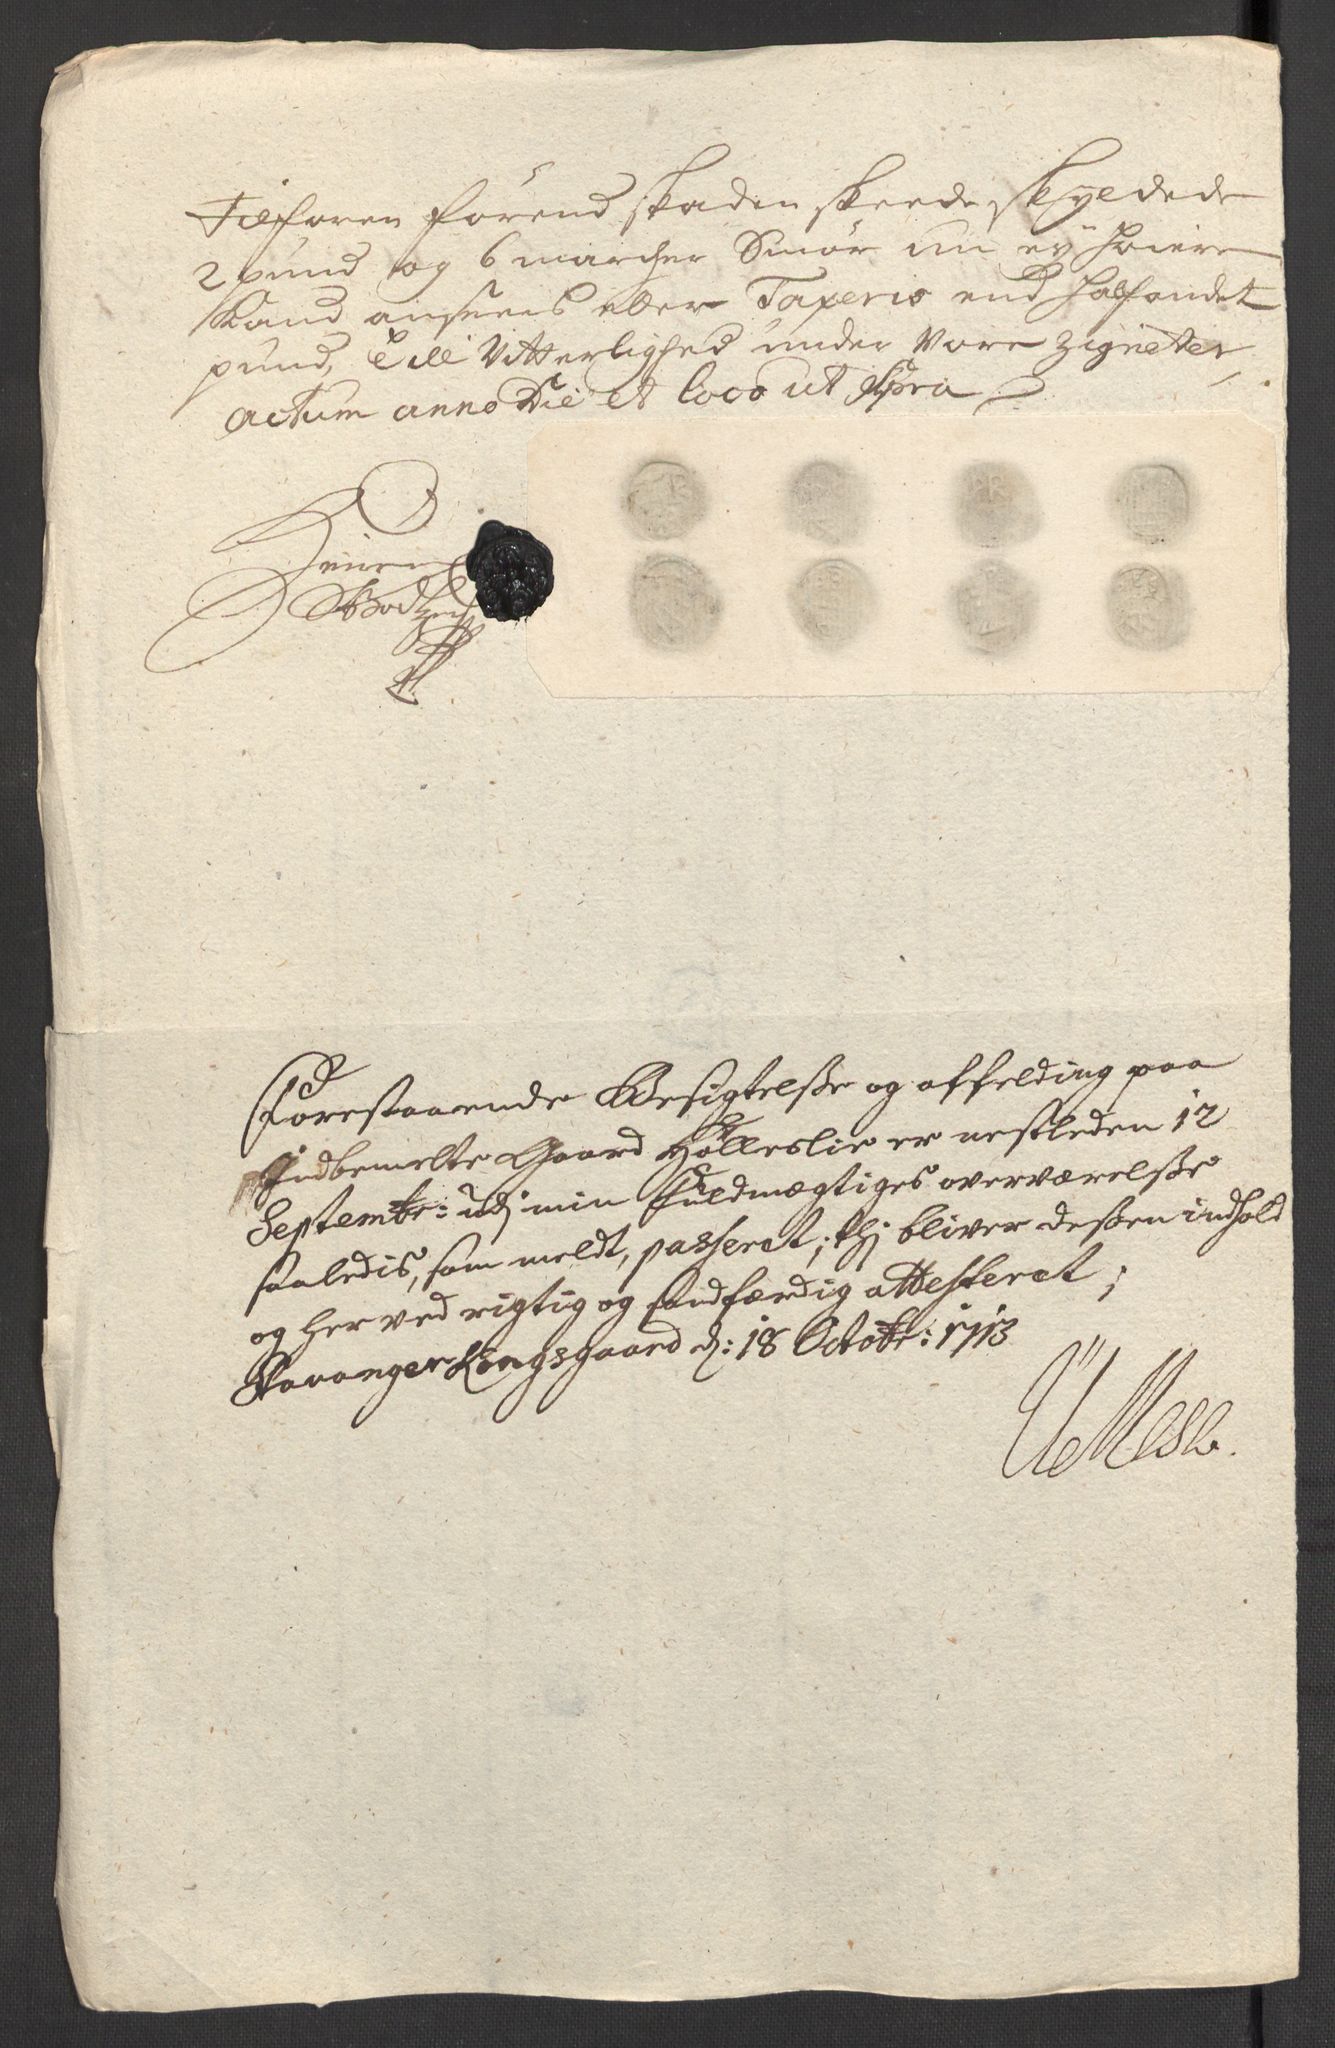 Tilforen förend skaden skeede, skyldede
2 pund og 6 marcher Smör nu eÿ höiere
Kand ansees eller Taxeris end halfandet
pund, Till Vitterlighed under Vore Zigneter,
actum anno Die et loco ut Supra
Forestaaende Besigtelsse og affelding paa
Indbemelte Gaard Hölleslie er nestleden 12
Septembr: udj min fuldmægtiges overværelsse
saaledis, som meldt, passeret; thj bliver dessen indhold
og herved rigtig og sandfærdig attesteret;
Stavanger Kongsgaard d: 18 Octobr: 1713